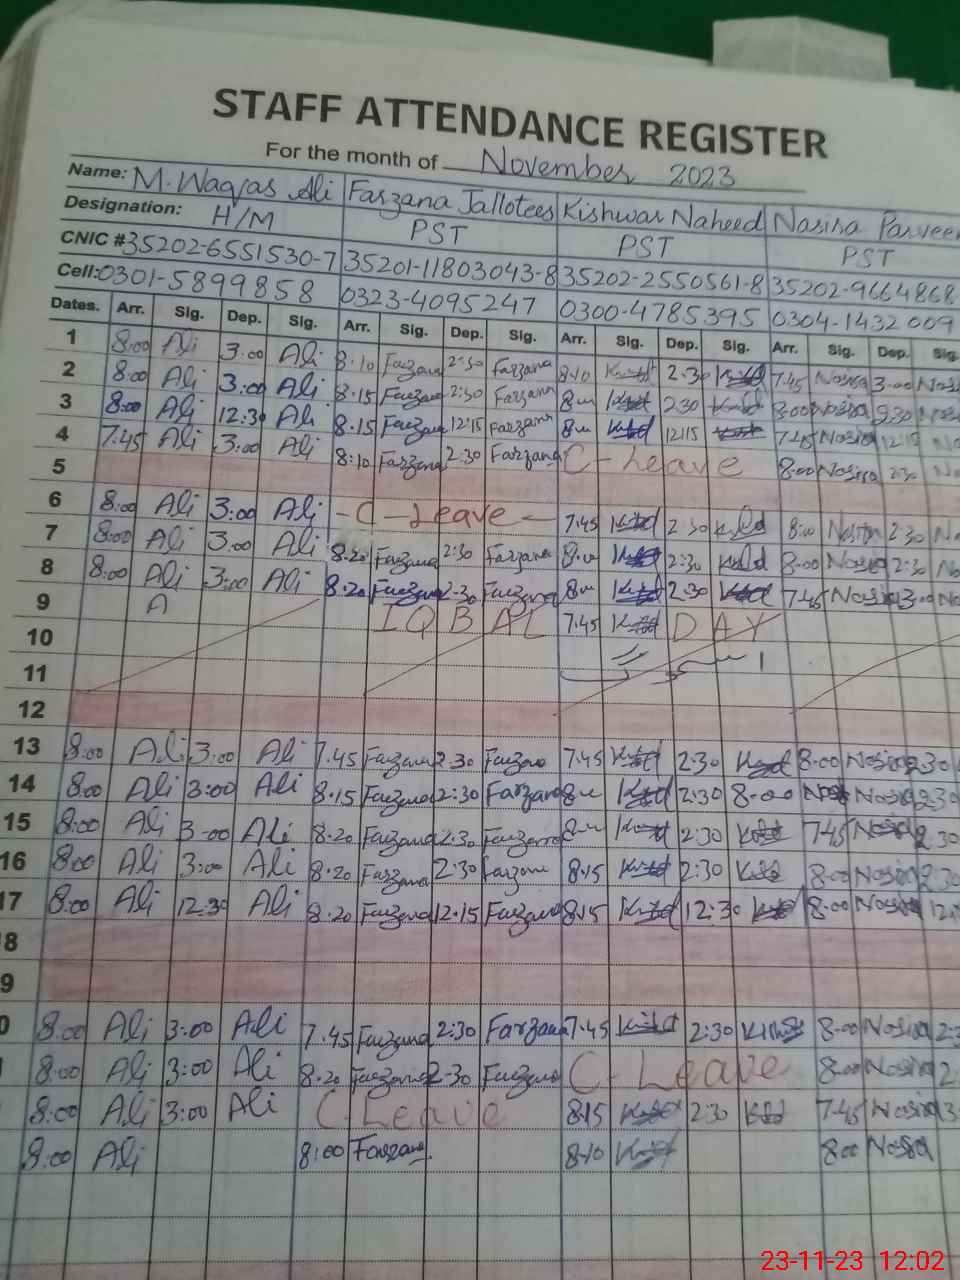 STAFF ATTENDANCE REGISTER
For the month of November 2023
Name: M. Waqas Ali Farzana Jallotees Kishwar Naheed Nasira Parveen
Designation: H/M PST PST PST
CNIC # 35202-6551530-7 35201-11803043-8 35202-2550561-8 35202-9664868-
Cell: 0301-5899858 0323-4095247 0300-4785395 0304-1432009
Dates. Arr. Sig. Dep. Sig. Arr. Sig. Dep. Sig. Arr. Sig. Dep. Sig. Arr. Sig. Dep. Sig.
1 8:00 Ali 3:00 Ali 8·10 Farzana 2:30 Farzana 8·10 2·30 7.45 Nasira 3·00 Nas
2 8:00 Ali 3:00 Ali 8·15 Farzana 2:30 Farzana 2·30 8:00 Nasira 2:30 Nas
3 8:00 Ali 12:30 Ali 8·15 Farzana 12·15 Farzana 12·15 7.45 Nasira 12:15 Na
4 7:45 Ali 3:00 Ali 8:10 Farzana 2·30 Farzana C-Leave 8:00 Nasira 2:30 N
5
6 8:00 Ali 3:00 Ali - C - Leave - 7.45 2:30 8:00 Nasira 2:30 N
7 8:00 Ali 3:00 Ali 8.20 Farzana 2:30 Farzana 2:30 8:00 Nasira 2:30 N
8 8:00 Ali 3:00 Ali 8.20 Farzana 2:30 Farzana 2:30 7.45 Nasira 3:00 N
9 A IQBAL 7.45 DAY
10
11
12
13 8:00 Ali 3:00 Ali 7.45 Farzana 2:30 Farzana 7.45 2:30 8:00 Nasira 2:30
14 8:00 Ali 3:00 Ali 8·15 Farzana 2:30 Farzana 2:30 8·00 Nasira 2:30
15 8:00 Ali 3·00 Ali 8.20 Farzana 2:30 Farzana 2:30 7.45 Nasira 2:30
16 8:00 Ali 3:00 Ali 8·20 Farzana 2:30 Farzana 8·15 2:30 8:00 Nasira 2:30
17 8:00 Ali 12:30 Ali 8·20 Farzana 12·15 Farzana 8·15 12:30 8:00 Nasira 12
8
9
0 8:00 Ali 3:00 Ali 7.45 Farzana 2:30 Farzana 7.45 2:30 8:00 Nasira 2:3
8:00 Ali 3:00 Ali 8·20 Farzana 2·30 Farzana C-Leave 8:00 Nasira 2
8:00 Ali 3:00 Ali C-Leave 8·15 2:30 7.45 Nasira 3
8:00 Ali 8:00 Farzana 8·10 8:00 Nasira
23-11-23 12:02